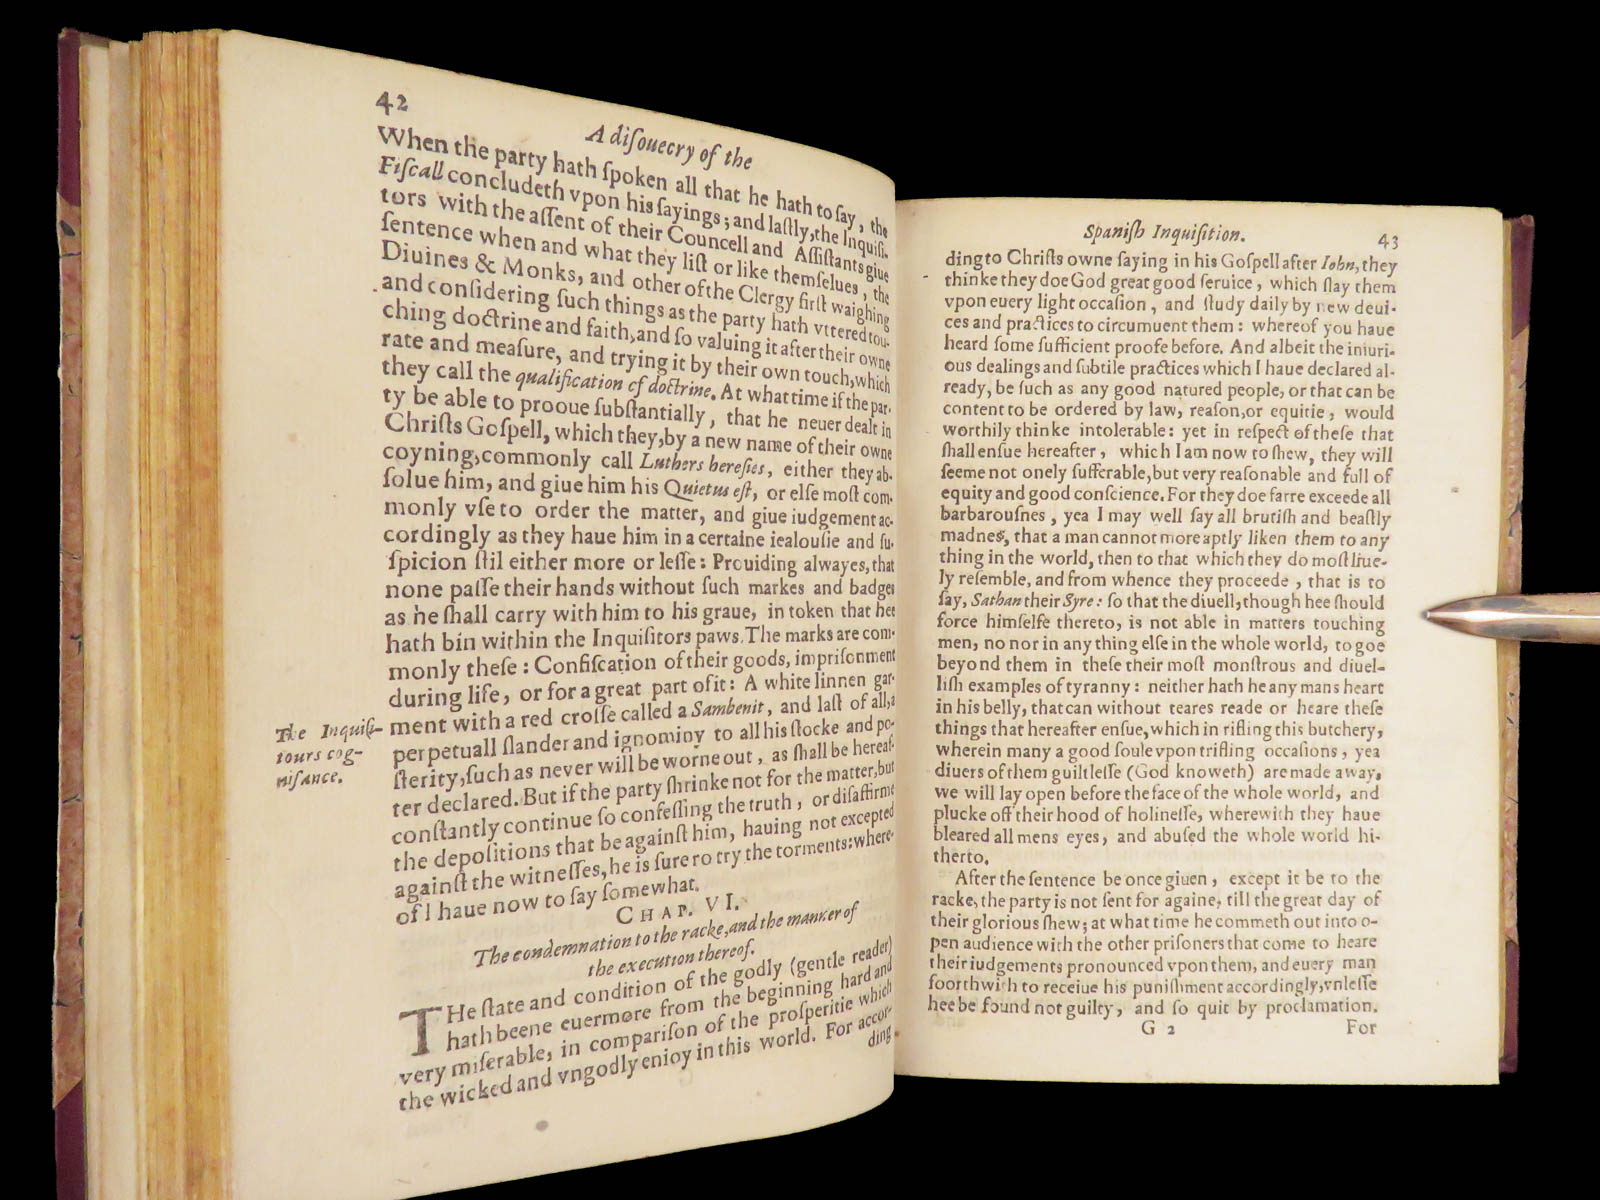 42
A diſouecry of the
When the party hath ſpoken all that he hath to ſay, the
Fiſcall concludeth vpon his ſayings; and laſtly, the Inquiſi-
tors with the aſſent of their Councell and Aſſiſtants giue
ſentence when and what they liſt or like themſelues, the
Diuines & Monks, and other of the Clergy firſt waighing
and conſidering ſuch things as the party hath vttered tou-
ching doctrine and faith, and ſo valuing it after their owne
rate and meaſure, and trying it by their own touch, which
they call the qualification of doctrine. At what time if the par-
ty be able to prooue ſubſtantially, that he neuer dealt in
Chriſts Goſpell, which they, by a new name of their owne
coyning, commonly call Luthers hereſies, either they ab-
ſolue him, and giue him his Quietus eſt, or elſe moſt com-
monly vſe to order the matter, and giue iudgement ac-
cordingly as they haue him in a certaine iealouſie and ſu-
ſpicion ſtil either more or leſſe: Prouiding alwayes, that
none paſſe their hands without ſuch markes and badges
as he ſhall carry with him to his graue, in token that hee
hath bin within the Inquiſitors paws. The marks are com-
monly theſe: Confiſcation of their goods, impriſonment
during life, or for a great part of it: A white linnen gar-
The Inquiſi-
tours cog-
niſance.
ment with a red croſſe called a Sambenit, and laſt of all, a
perpetuall ſlander and ignominy to all his ſtocke and po-
ſterity, ſuch as neuer will be worne out, as ſhall be hereaf-
ter declared. But if the party ſhrinke not for the matter, but
conſtantly continue ſo confeſſing the truth, or diſaffirme
the depoſitions that be againſt him, hauing not excepted
againſt the witneſſes, he is ſure ro try the torments: where-
of I haue now to ſay ſomewhat.
CHAP. VI.
The condemnation to the racke, and the manner of
the execution thereof.
THe ſtate and condition of the godly (gentle reader)
hath beene euermore from the beginning hard and
very miſerable, in compariſon of the proſperitie which
the wicked and vngodly enioy in this world. For accor-
ding
Spaniſh Inquiſition.
43
ding to Chriſts owne ſaying in his Goſpell after Iohn, they
thinke they doe God great good ſeruice, which ſlay them
vpon euery light occaſion, and ſtudy daily by new deui-
ces and practices to circumuent them: whereof you haue
heard ſome ſufficient proofe before. And albeit the iniuri-
ous dealings and ſubtile practices which I haue declared al-
ready, be ſuch as any good natured people, or that can be
content to be ordered by law, reaſon, or equitie, would
worthily thinke intolerable: yet in reſpect of theſe that
ſhall enſue hereafter, which I am now to ſhew, they will
ſeeme not onely ſufferable, but very reaſonable and full of
equity and good conſcience. For they doe farre exceede all
barbarouſnes, yea I may well ſay all brutiſh and beaſtly
madnes, that a man cannot more aptly liken them to any
thing in the world, then to that which they do moſt liue-
ly reſemble, and from whence they proceede, that is to
ſay, Sathan their Syre: ſo that the diuell, though hee ſhould
force himſelfe thereto, is not able in matters touching
men, no nor in any thing elſe in the whole world, to goe
beyond them in theſe their moſt monſtrous and diuel-
liſh examples of tyranny: neither hath he any mans heart
in his belly, that can without teares reade or heare theſe
things that hereafter enſue, which in rifling this butchery,
wherein many a good ſoule vpon trifling occaſions, yea
diuers of them guiltleſſe (God knoweth) are made away,
we will lay open before the face of the whole world, and
plucke off their hood of holineſſe, wherewith they haue
bleared all mens eyes, and abuſed the whole world hi-
therto.
After the ſentence be once giuen, except it be to the
racke, the party is not ſent for againe, till the great day of
their glorious ſhew; at what time he commeth out into o-
pen audience with the other priſoners that come to heare
their iudgements pronounced vpon them, and euery man
foorthwith to receiue his puniſhment accordingly, vnleſſe
hee be found not guilty, and ſo quit by proclamation.
G 2
For